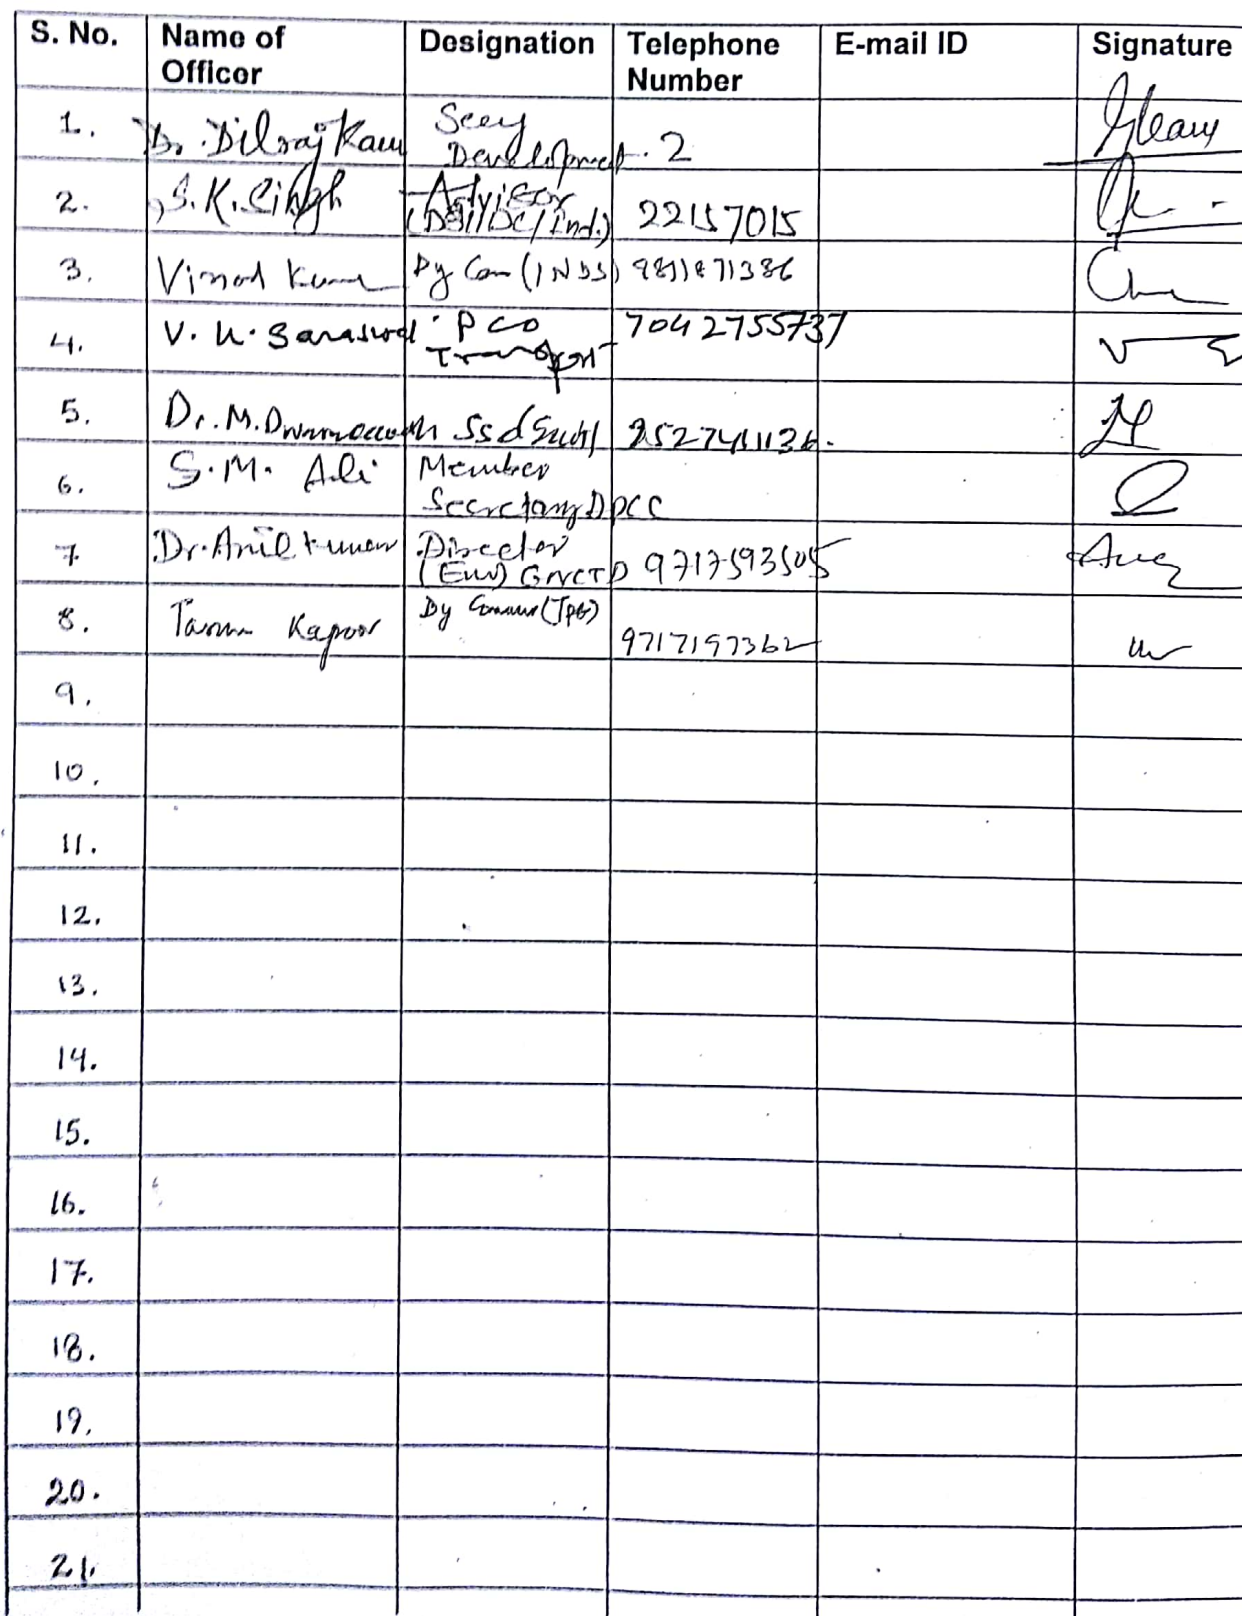 S. No. Name of Officer Designation Telephone Number E-mail ID Signature
1. Dr. Dilraj Kaur Secy Development. 2
2. S.K. Singh Advisor (DSIIDC/Ind.) 22157015
3. Vinod Kumar Dy Com (INDS) 9811871386
4. V. K. Saraswat PCO Transport 7042755737
5. Dr. M. 2527411136.
6. S.M. Ali Member Secretary DPCC
7. Dr. Anil Kumar Director (Env) GNCTD 9717593505
8. Kapoor Dy Commr 9717197362
9.
10.
11.
12.
13.
14.
15.
16.
17.
18.
19.
20.
21.